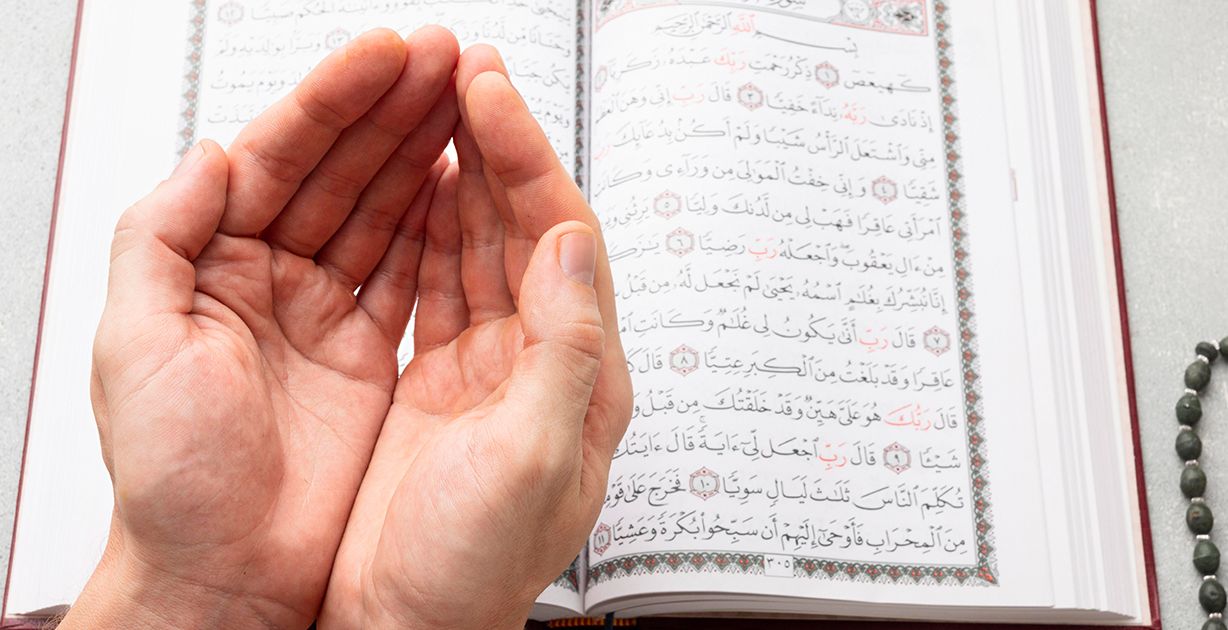 بِسْمِ ٱللَّهِ ٱلرَّحْمَٰنِ ٱلرَّحِيمِ
كٓهيعٓصٓ ١ ذِكْرُ رَحْمَتِ رَبِّكَ عَبْدَهُۥ زَكَرِيَّآ
إِذْ نَادَىٰ رَبَّهُۥ نِدَآءً خَفِيًّا ٣ قَالَ رَبِّ إِنِّى وَهَنَ ٱلْعَظْمُ
مِنِّى وَٱشْتَعَلَ ٱلرَّأْسُ شَيْبًا وَلَمْ أَكُنۢ بِدُعَآئِكَ رَبِّ
شَقِيًّا ٤ وَإِنِّى خِفْتُ ٱلْمَوَٰلِىَ مِن وَرَآءِى وَكَانَتِ
ٱمْرَأَتِى عَاقِرًا فَهَبْ لِى مِن لَّدُنكَ وَلِيًّا ٥ يَرِثُنِى
مِنْ ءَالِ يَعْقُوبَ وَٱجْعَلْهُ رَبِّ رَضِيًّا ٦
إِنَّا نُبَشِّرُكَ بِغُلَٰمٍ ٱسْمُهُۥ يَحْيَىٰ لَمْ نَجْعَل لَّهُۥ مِن قَبْلُ
٧ قَالَ رَبِّ أَنَّىٰ يَكُونُ لِى غُلَٰمٌ وَكَانَتِ
عَاقِرًا وَقَدْ بَلَغْتُ مِنَ ٱلْكِبَرِ عِتِيًّا ٨ قَالَ
قَالَ رَبُّكَ هُوَ عَلَىَّ هَيِّنٌ وَقَدْ خَلَقْتُكَ مِن قَبْلُ
شَيْـًٔا ٩ قَالَ رَبِّ ٱجْعَل لِّىٓ ءَايَةً قَالَ ءَايَتُكَ
تُكَلِّمَ ٱلنَّاسَ ثَلَٰثَ لَيَالٍ سَوِيًّا ١٠ فَخَرَجَ عَلَىٰ
مِنَ ٱلْمِحْرَابِ فَأَوْحَىٰٓ إِلَيْهِمْ أَن سَبِّحُوا۟ بُكْرَةً وَعَشِيًّا ١١
٣٠٥
ٱلْحُكْمَ صَبِيًّا
وَحَنَانًا مِّن لَّدُنَّا ١٣ وَبَرًّۢا بِوَٰلِدَيْهِ وَلَمْ
يَكُن
وَيَوْمَ يَمُوتُ